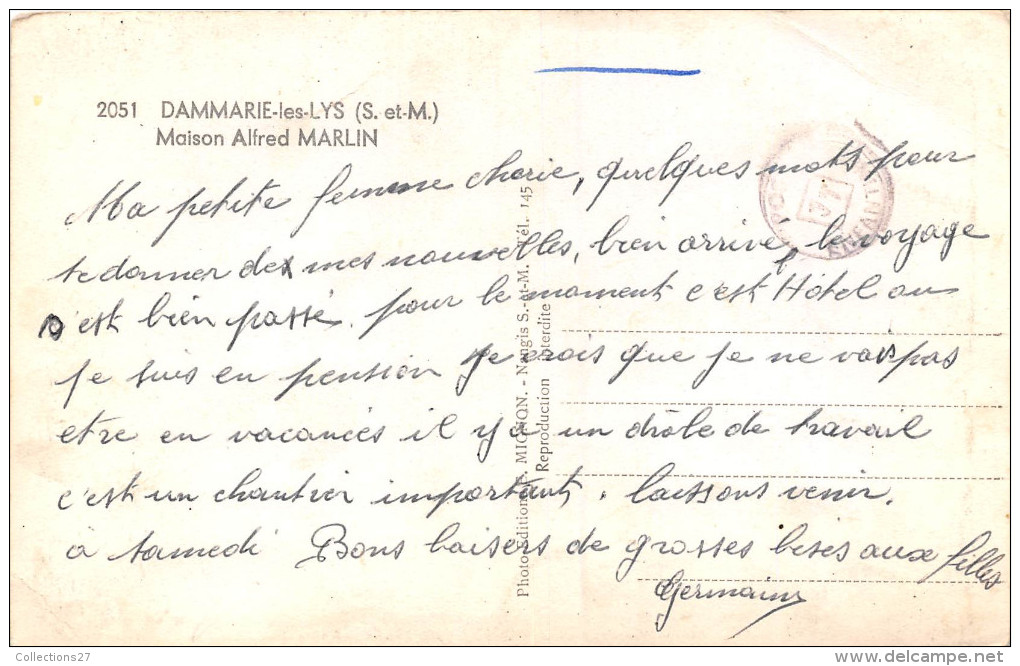 2051 DAMMARIE-les-LYS (S. et-M.)
Maison Alfred MARLIN
Ma petite femme cherie, quelques mots pour
te donner des mes nouvelles, bien arrivé, le voyage
c'est bien passé. pour le moment c'est Hôtel ou
je suis en pension je crois que je ne vais pas
etre en vacances il y a un drôle de travail
c'est un chantier important, laissons venir.
a samedi Bons baisers de grosses bises aux filles
Germain
Photo-Edition MIGNON. - Nangis S.-et-M. Tél. 145
Reproduction interdite
Collections27
delcampe.net